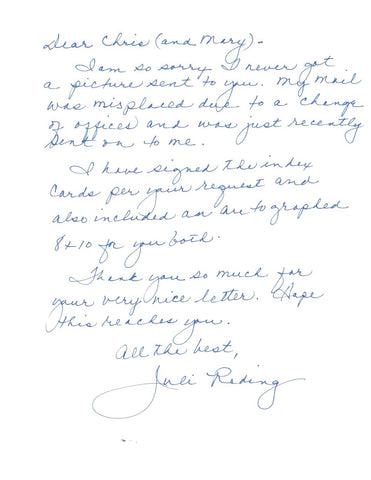 Dear Chris (and Mary) -
I am so sorry I never got
a picture sent to you. My mail
was misplaced due to a change
of offices and was just recently
sent on to me.
I have signed the index
cards per your request and
also included an autographed
8x10 for you both.
Thank you so much for
your very nice letter. Hope
this reaches you.
All the best,
Juli Reding